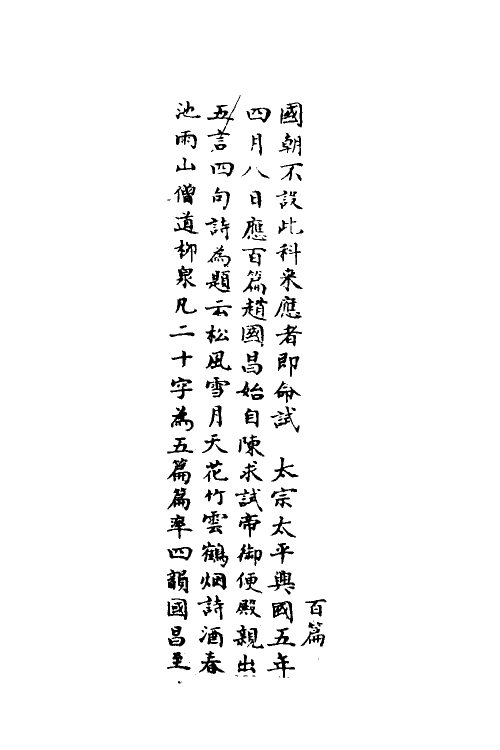 百篇
國朝不設此科來應者即命試　太宗太平興國五年
四月八日應百篇趙國昌始自陳求試帝御便殿親出
五言四句詩為題云松風雪月天花竹雲鶴烟詩酒春
池雨山僧道柳泉凡二十字為五篇篇率四韻國昌至